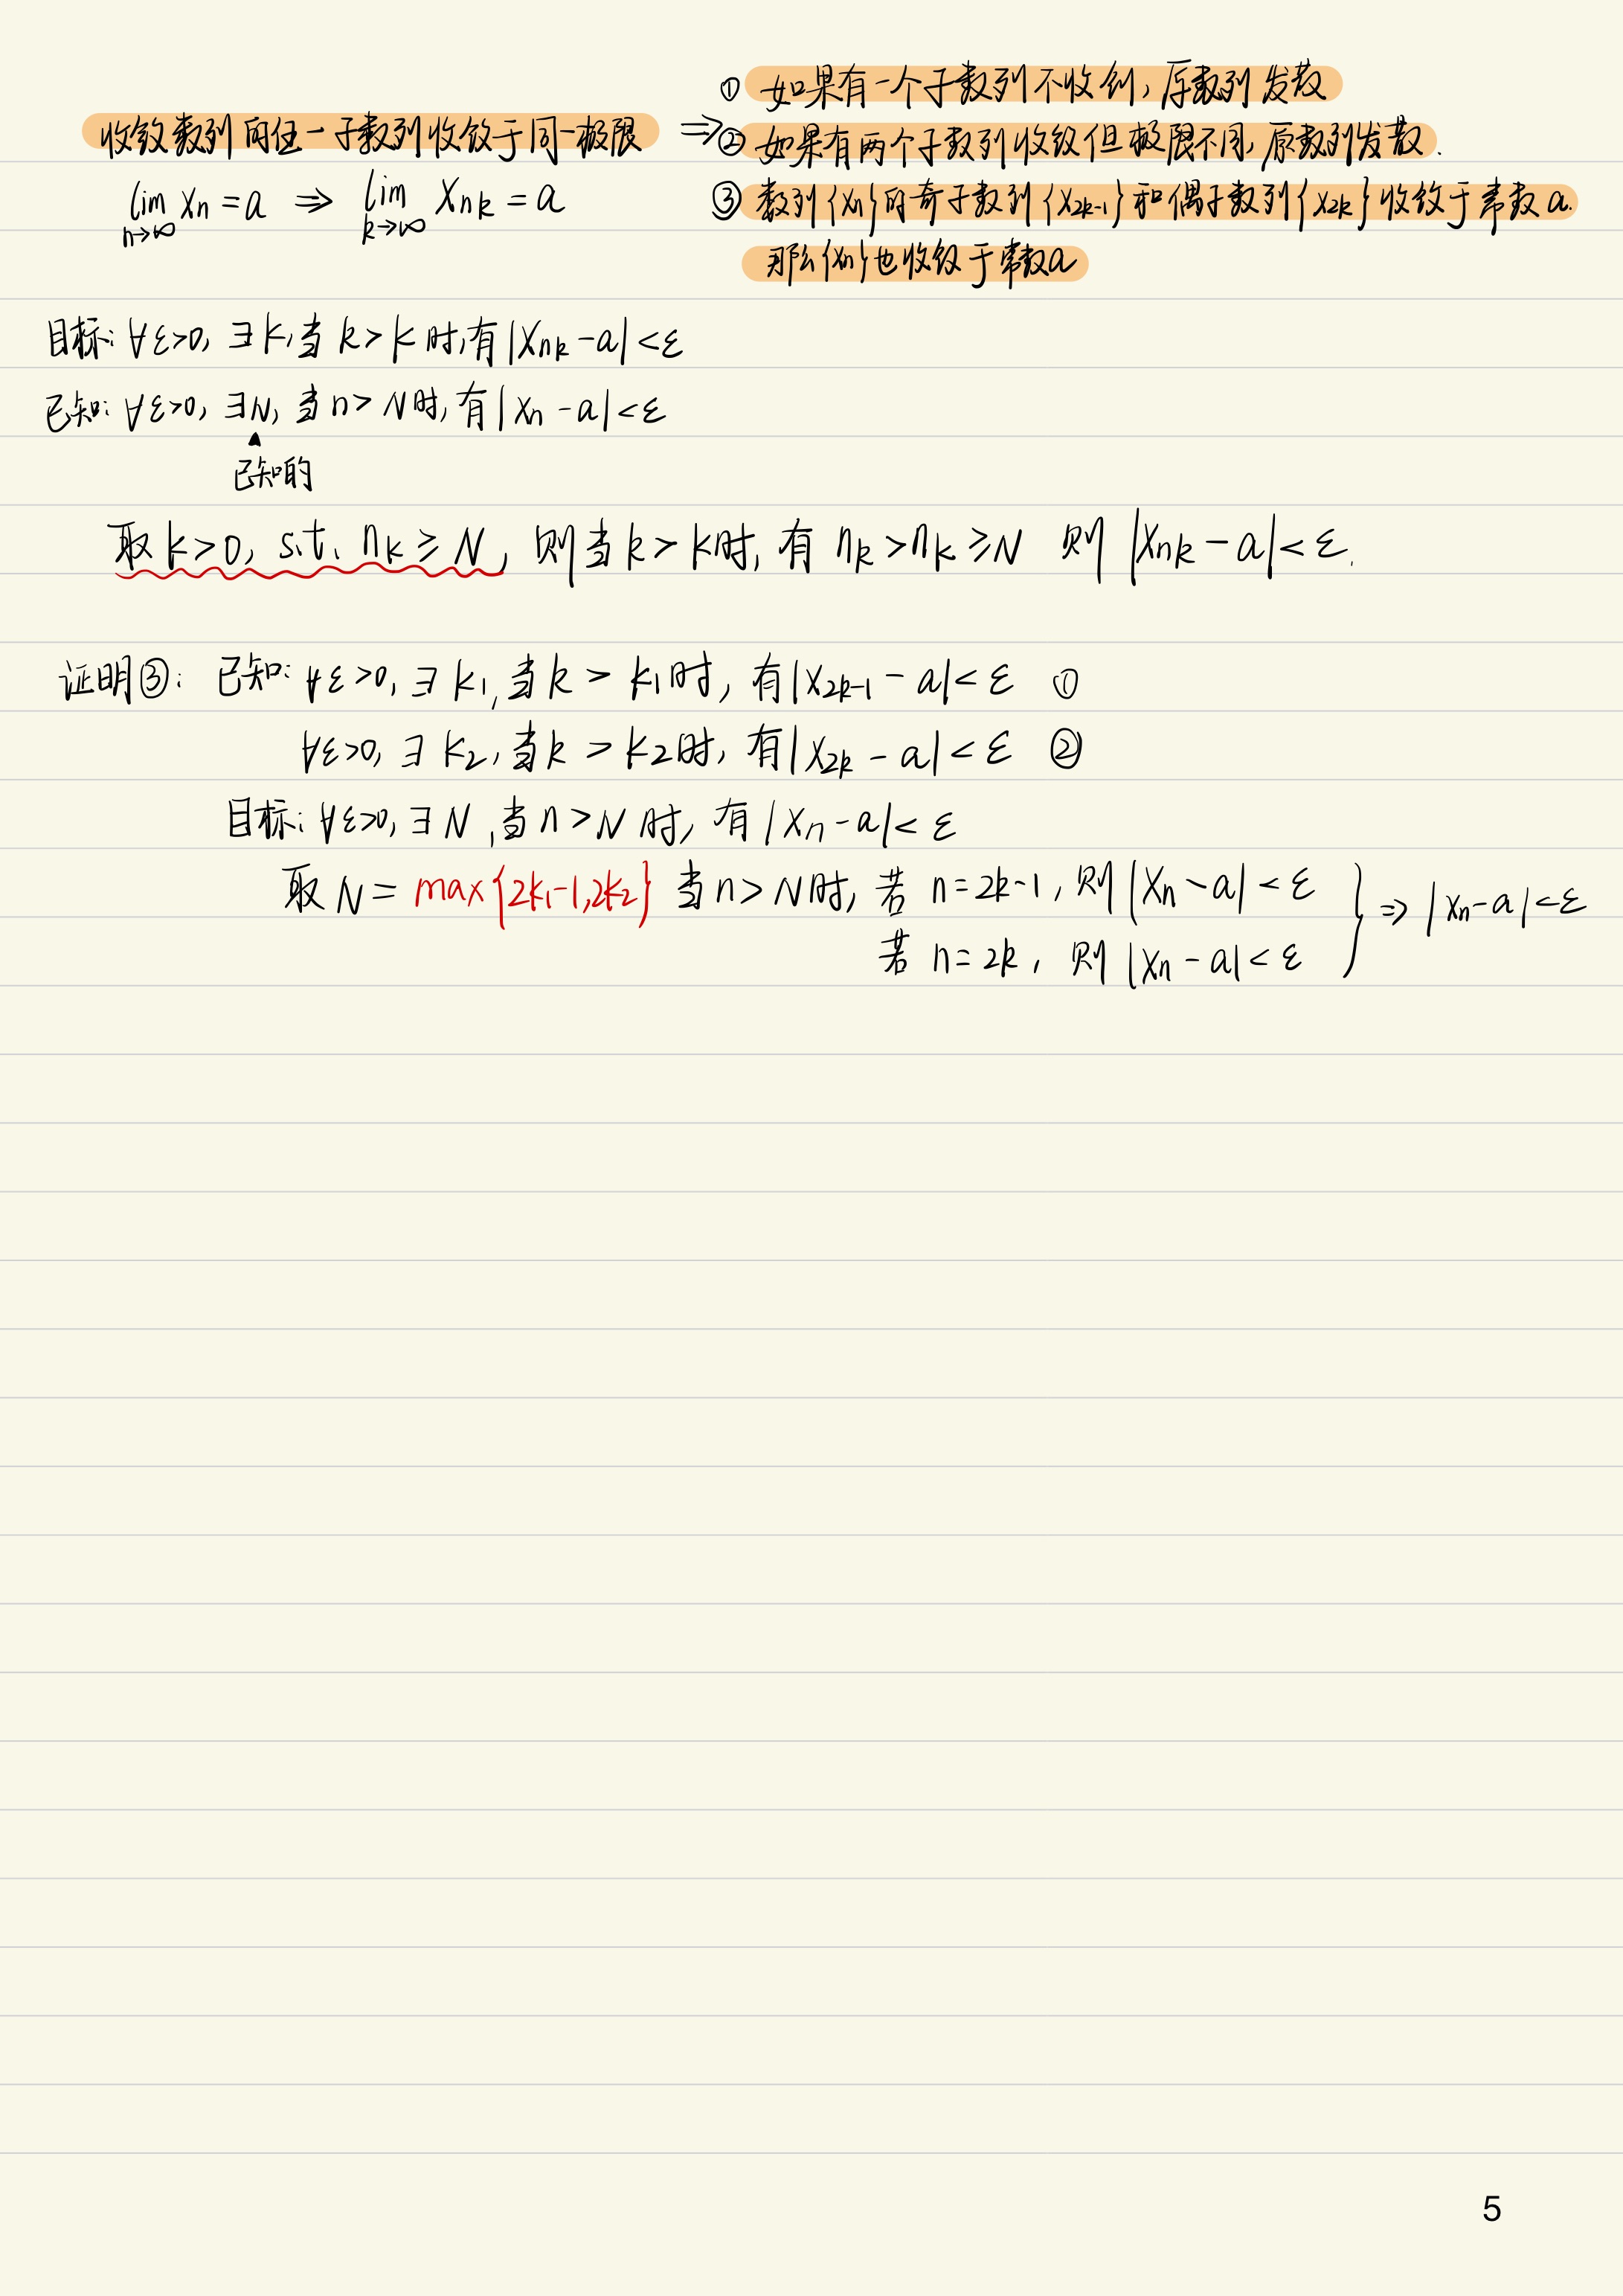 收敛数列的任一子数列收敛于同一极限 ⇒
lim_{n→∞} xn = a ⇒ lim_{k→∞} x_{nk} = a
① 如果有一个子数列不收敛, 原数列发散
② 如果有两个子数列收敛但极限不同, 原数列发散.
③ 数列{xn}的奇子数列{x_{2k-1}}和偶子数列{x_{2k}}收敛于常数a.
那么{xn}也收敛于常数a
目标: ∀ε>0, ∃K, 当k>K时, 有|x_{nk}-a|<ε
已知: ∀ε>0, ∃N, 当n>N时, 有|xn-a|<ε
已知的
取K>0, s.t. n_K≥N, 则当k>K时, 有 n_k>n_K≥N 则 |x_{nk}-a|<ε.
证明③: 已知: ∀ε>0, ∃K1, 当k>K1时, 有|x_{2k-1}-a|<ε ①
∀ε>0, ∃K2, 当k>K2时, 有|x_{2k}-a|<ε ②
目标: ∀ε>0, ∃N, 当n>N时, 有|xn-a|<ε
取N=max{2K1-1,2K2} 当n>N时, 若 n=2k-1, 则|xn-a|<ε } ⇒ |xn-a|<ε
若 n=2k, 则|xn-a|<ε
5